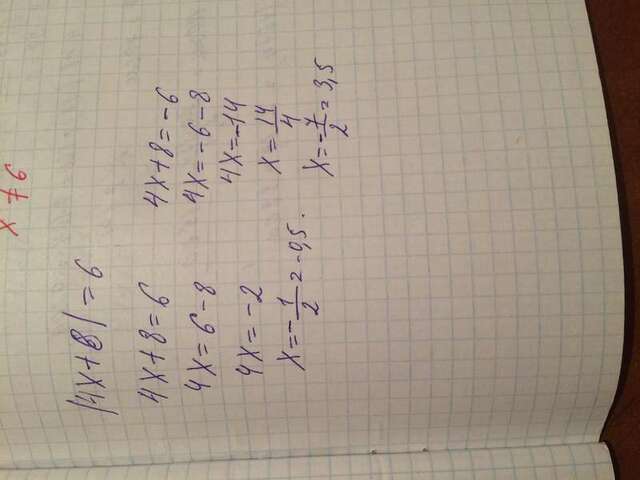 x ≠ 6
|4x+8| = 6
4x+8=6
4x=6-8
4x=-2
x=-1/2=-0,5.
4x+8=-6
4x=-6-8
4x=-14
x=14/4
x=-7/2=3,5